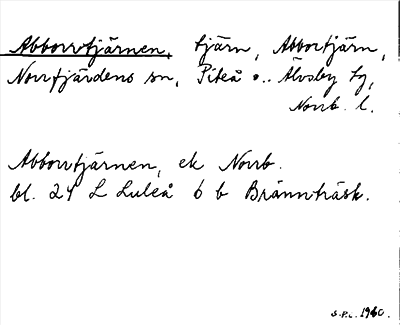 Abborrtjärnen, tjärn, Abbortjärn,
Norrfjärdens sn, Piteå o. Älvsby tg,
Norrb. l.
Abborrtjärnen, ek Norrb.
bl. 24 L Luleå 6 b Brännträsk.
S.P.L. 1960.